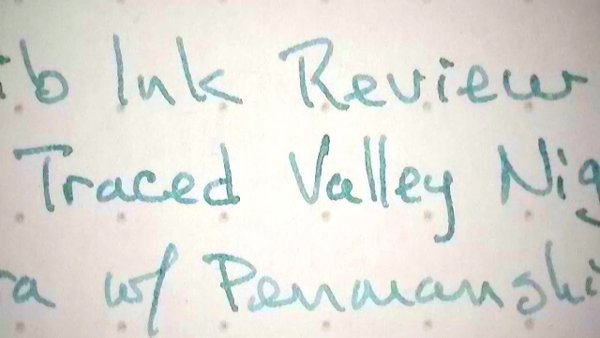 ib Ink Review
Traced Valley Nig
ra w/ Penmanshi